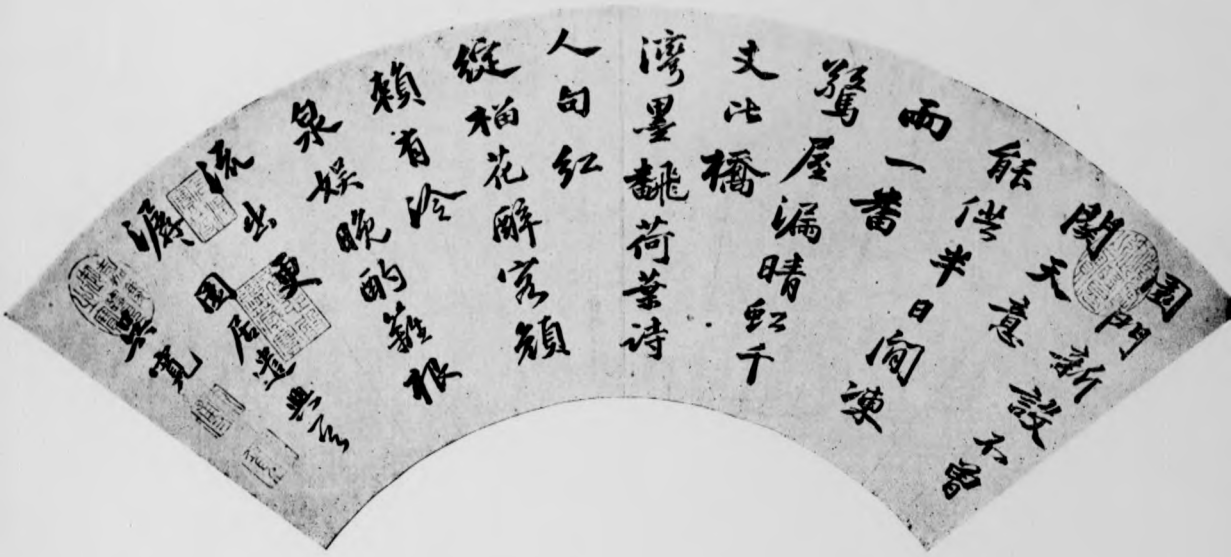 園門新設不曾
關天意
能供半日閒凍
雨一番
驚屋漏晴虹千
丈比橋
灣墨飜荷葉詩
人句紅
綻榴花醉客顏
賴有冷
泉娛晚酌籬根
流出更
潺園居遣興
吳寬